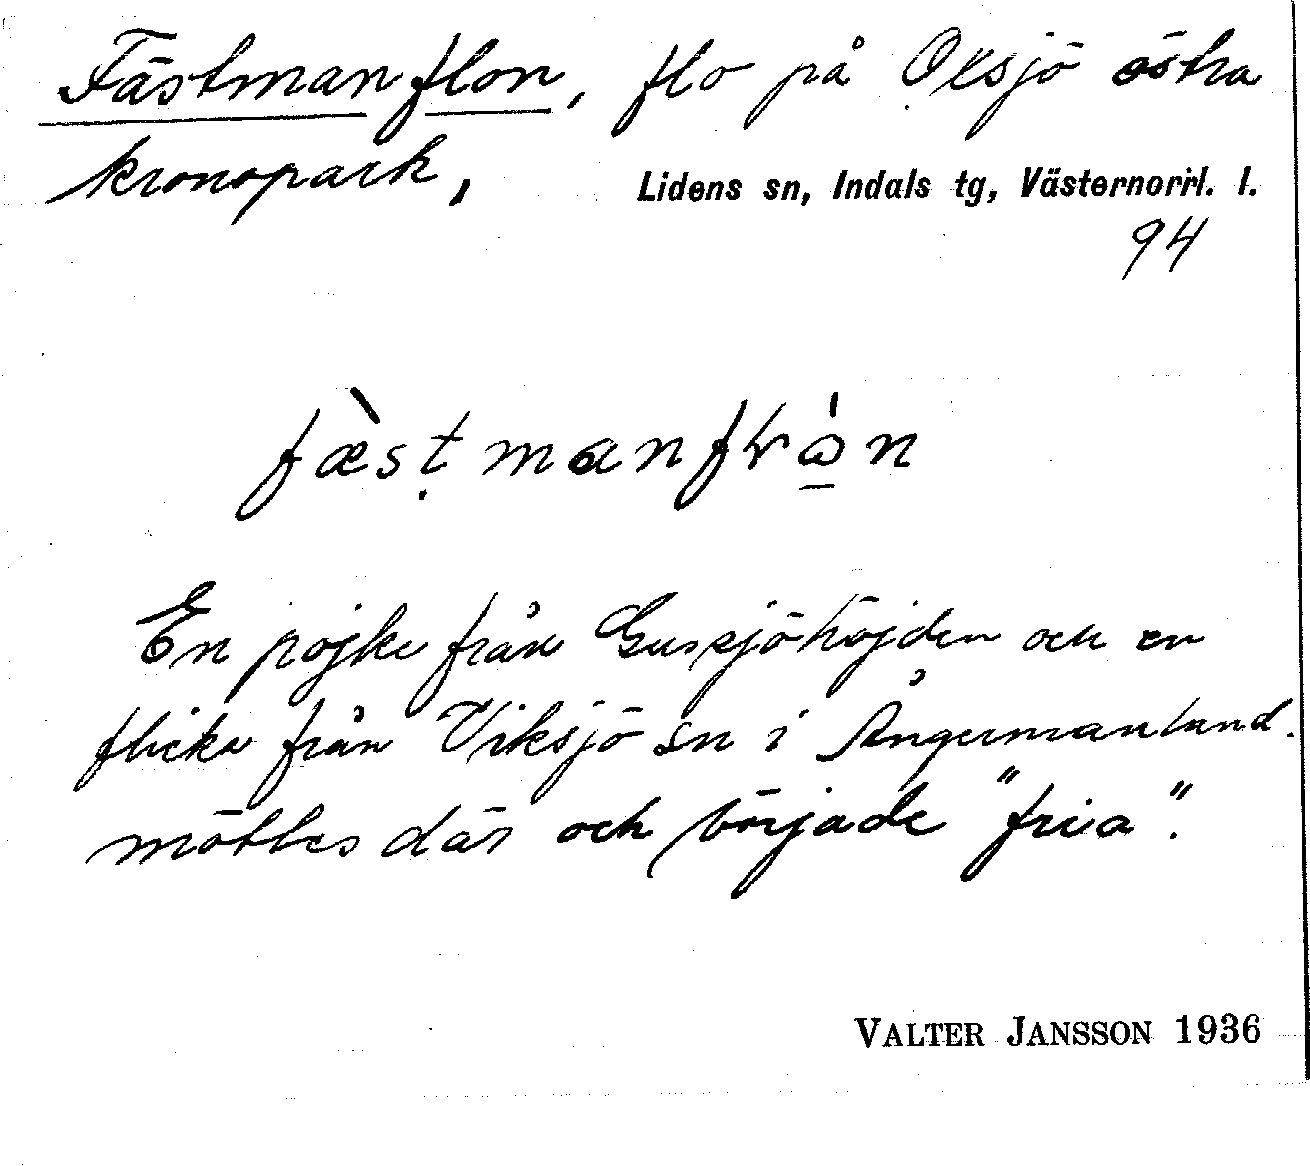 Fästmanflon, flo på Oxsjö östra
kronopark, Lidens sn, Indals tg, Västernorrl. l.
94
En pojke från Gussjöhöjden och en
flicka från Viksjö sn i Ångermanland.
möttes där och började "fria".
VALTER JANSSON 1936